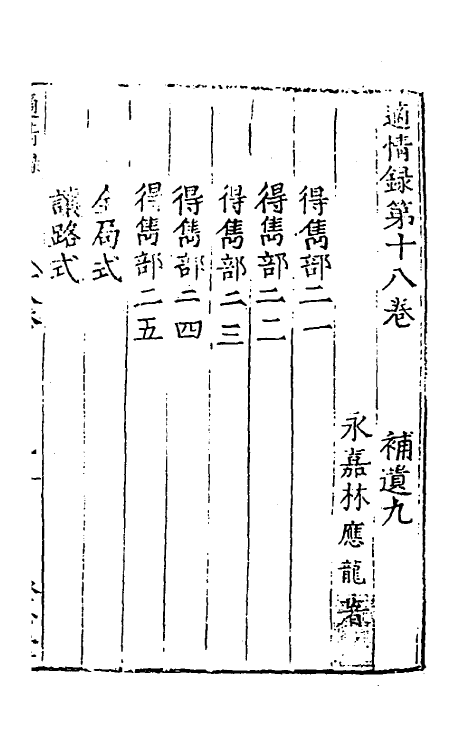 適情録第十八卷　補遺九
永嘉林應龍著
得雋部二一
得雋部二二
得雋部二三
得雋部二四
得雋部二五
全局式
讓路式